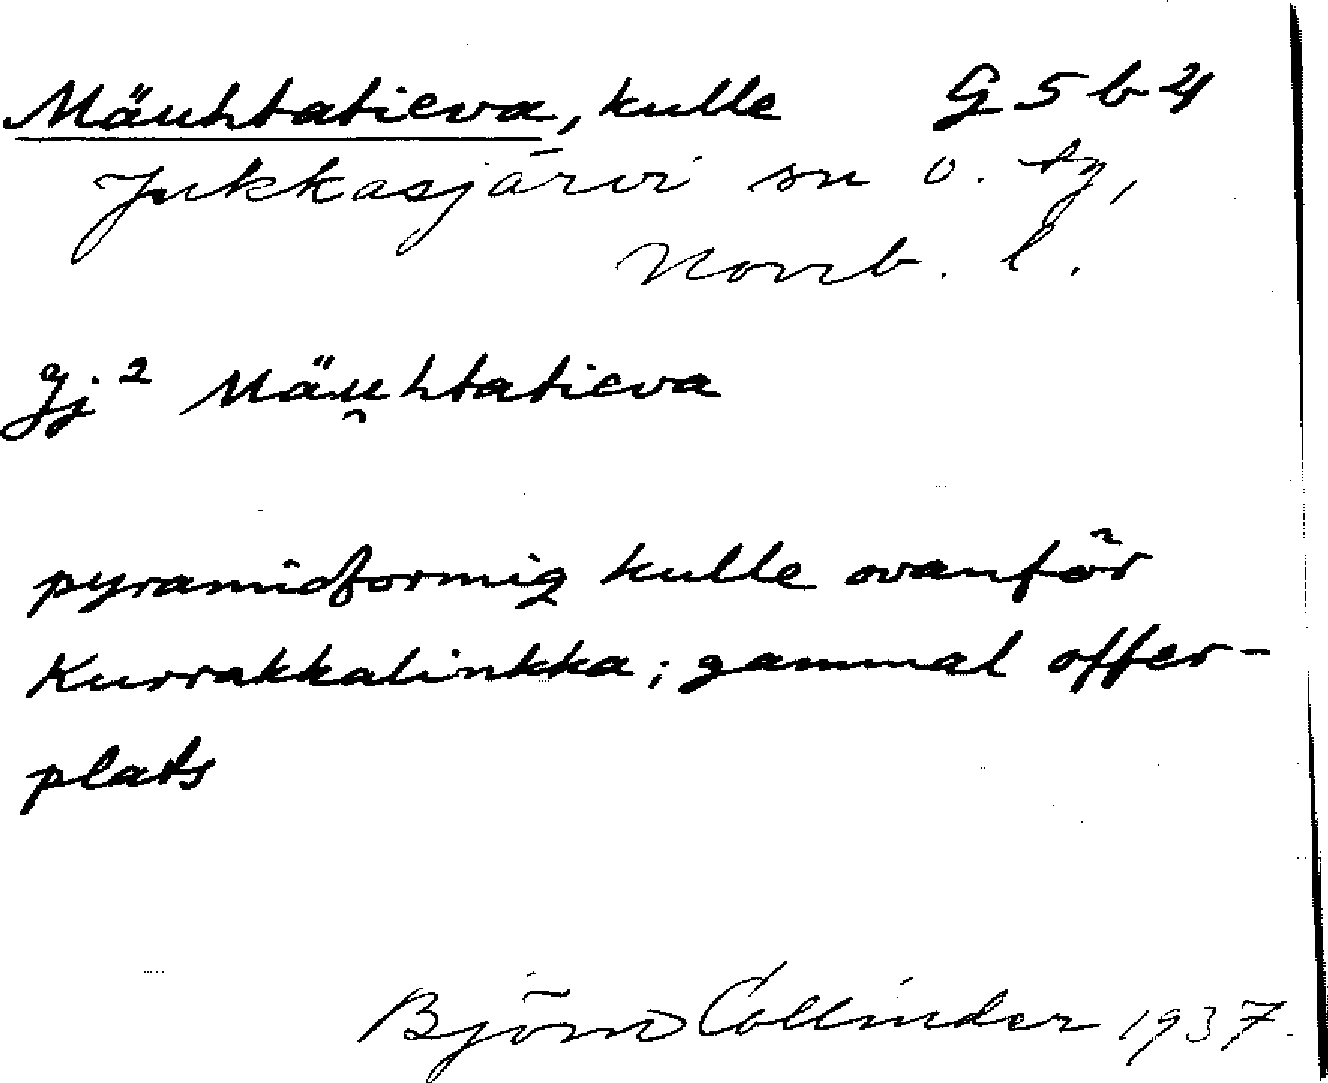 Mäuhtatieva, kulle G 5 b 4
Jukkasjärvi sn o. tg,
Norrb. l.
Jj² Mäu̯htatieva
pyramidformig kulle ovanför
Kurrakkalinkka; gammal offer-
plats
Björn Collinder 1937.